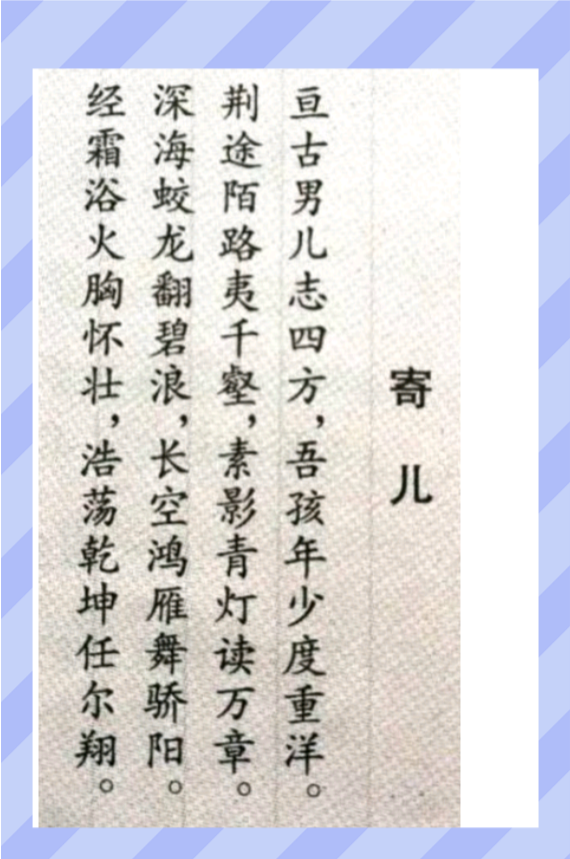 寄儿
亘古男儿志四方，吾孩年少度重洋。
荆途陌路夷千壑，素影青灯读万章。
深海蛟龙翻碧浪，长空鸿雁舞骄阳。
经霜浴火胸怀壮，浩荡乾坤任尔翔。